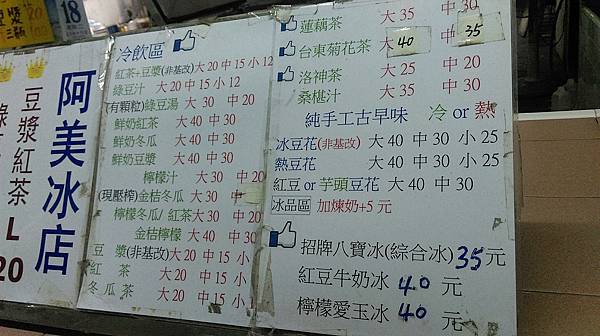 18
阿美冰店
豆漿紅茶
L
20
冷飲區
紅茶+豆漿(非基改)大20中15小12
綠豆汁 大20中15小12
(有顆粒)綠豆湯 大30 中20
鮮奶紅茶 大40 中30
鮮奶冬瓜 大40 中30
鮮奶豆漿 大40 中30
檸檬汁 大30 中20
(現壓榨)金桔冬瓜 大30 中20
檸檬冬瓜/紅茶大30 中20
金桔檸檬 大40 中30
豆 漿(非基改)大20 中15 小
紅 茶 大20 中15 小
冬瓜茶 大20 中15 小
蓮藕茶 大35 中30
台東菊花茶 大40 中35
洛神茶 大25 中20
桑椹汁 大35 中30
純手工古早味 冷 or 熱
冰豆花(非基改) 大40 中30 小25
熱豆花 大40 中30 小25
紅豆 or 芋頭豆花 大40 中30
冰品區 加煉奶+5元
招牌八寶冰(綜合冰)35元
紅豆牛奶冰 40元
檸檬愛玉冰 40元